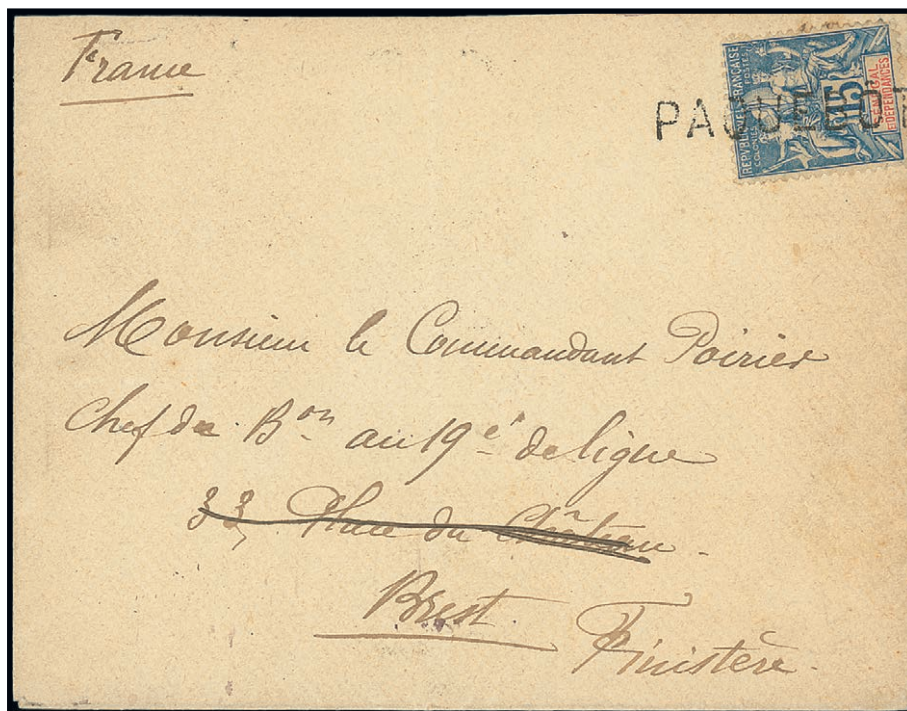 France
PAQUEBOT
REPUBLIQUE FRANÇAISE
COLONIES POSTES
15
SÉNÉGAL
ET DÉPENDANCES
Monsieur le Commandant Poirier
Chef de Bon au 19e de ligne
33, Place du Château.
Brest.
Finistère.